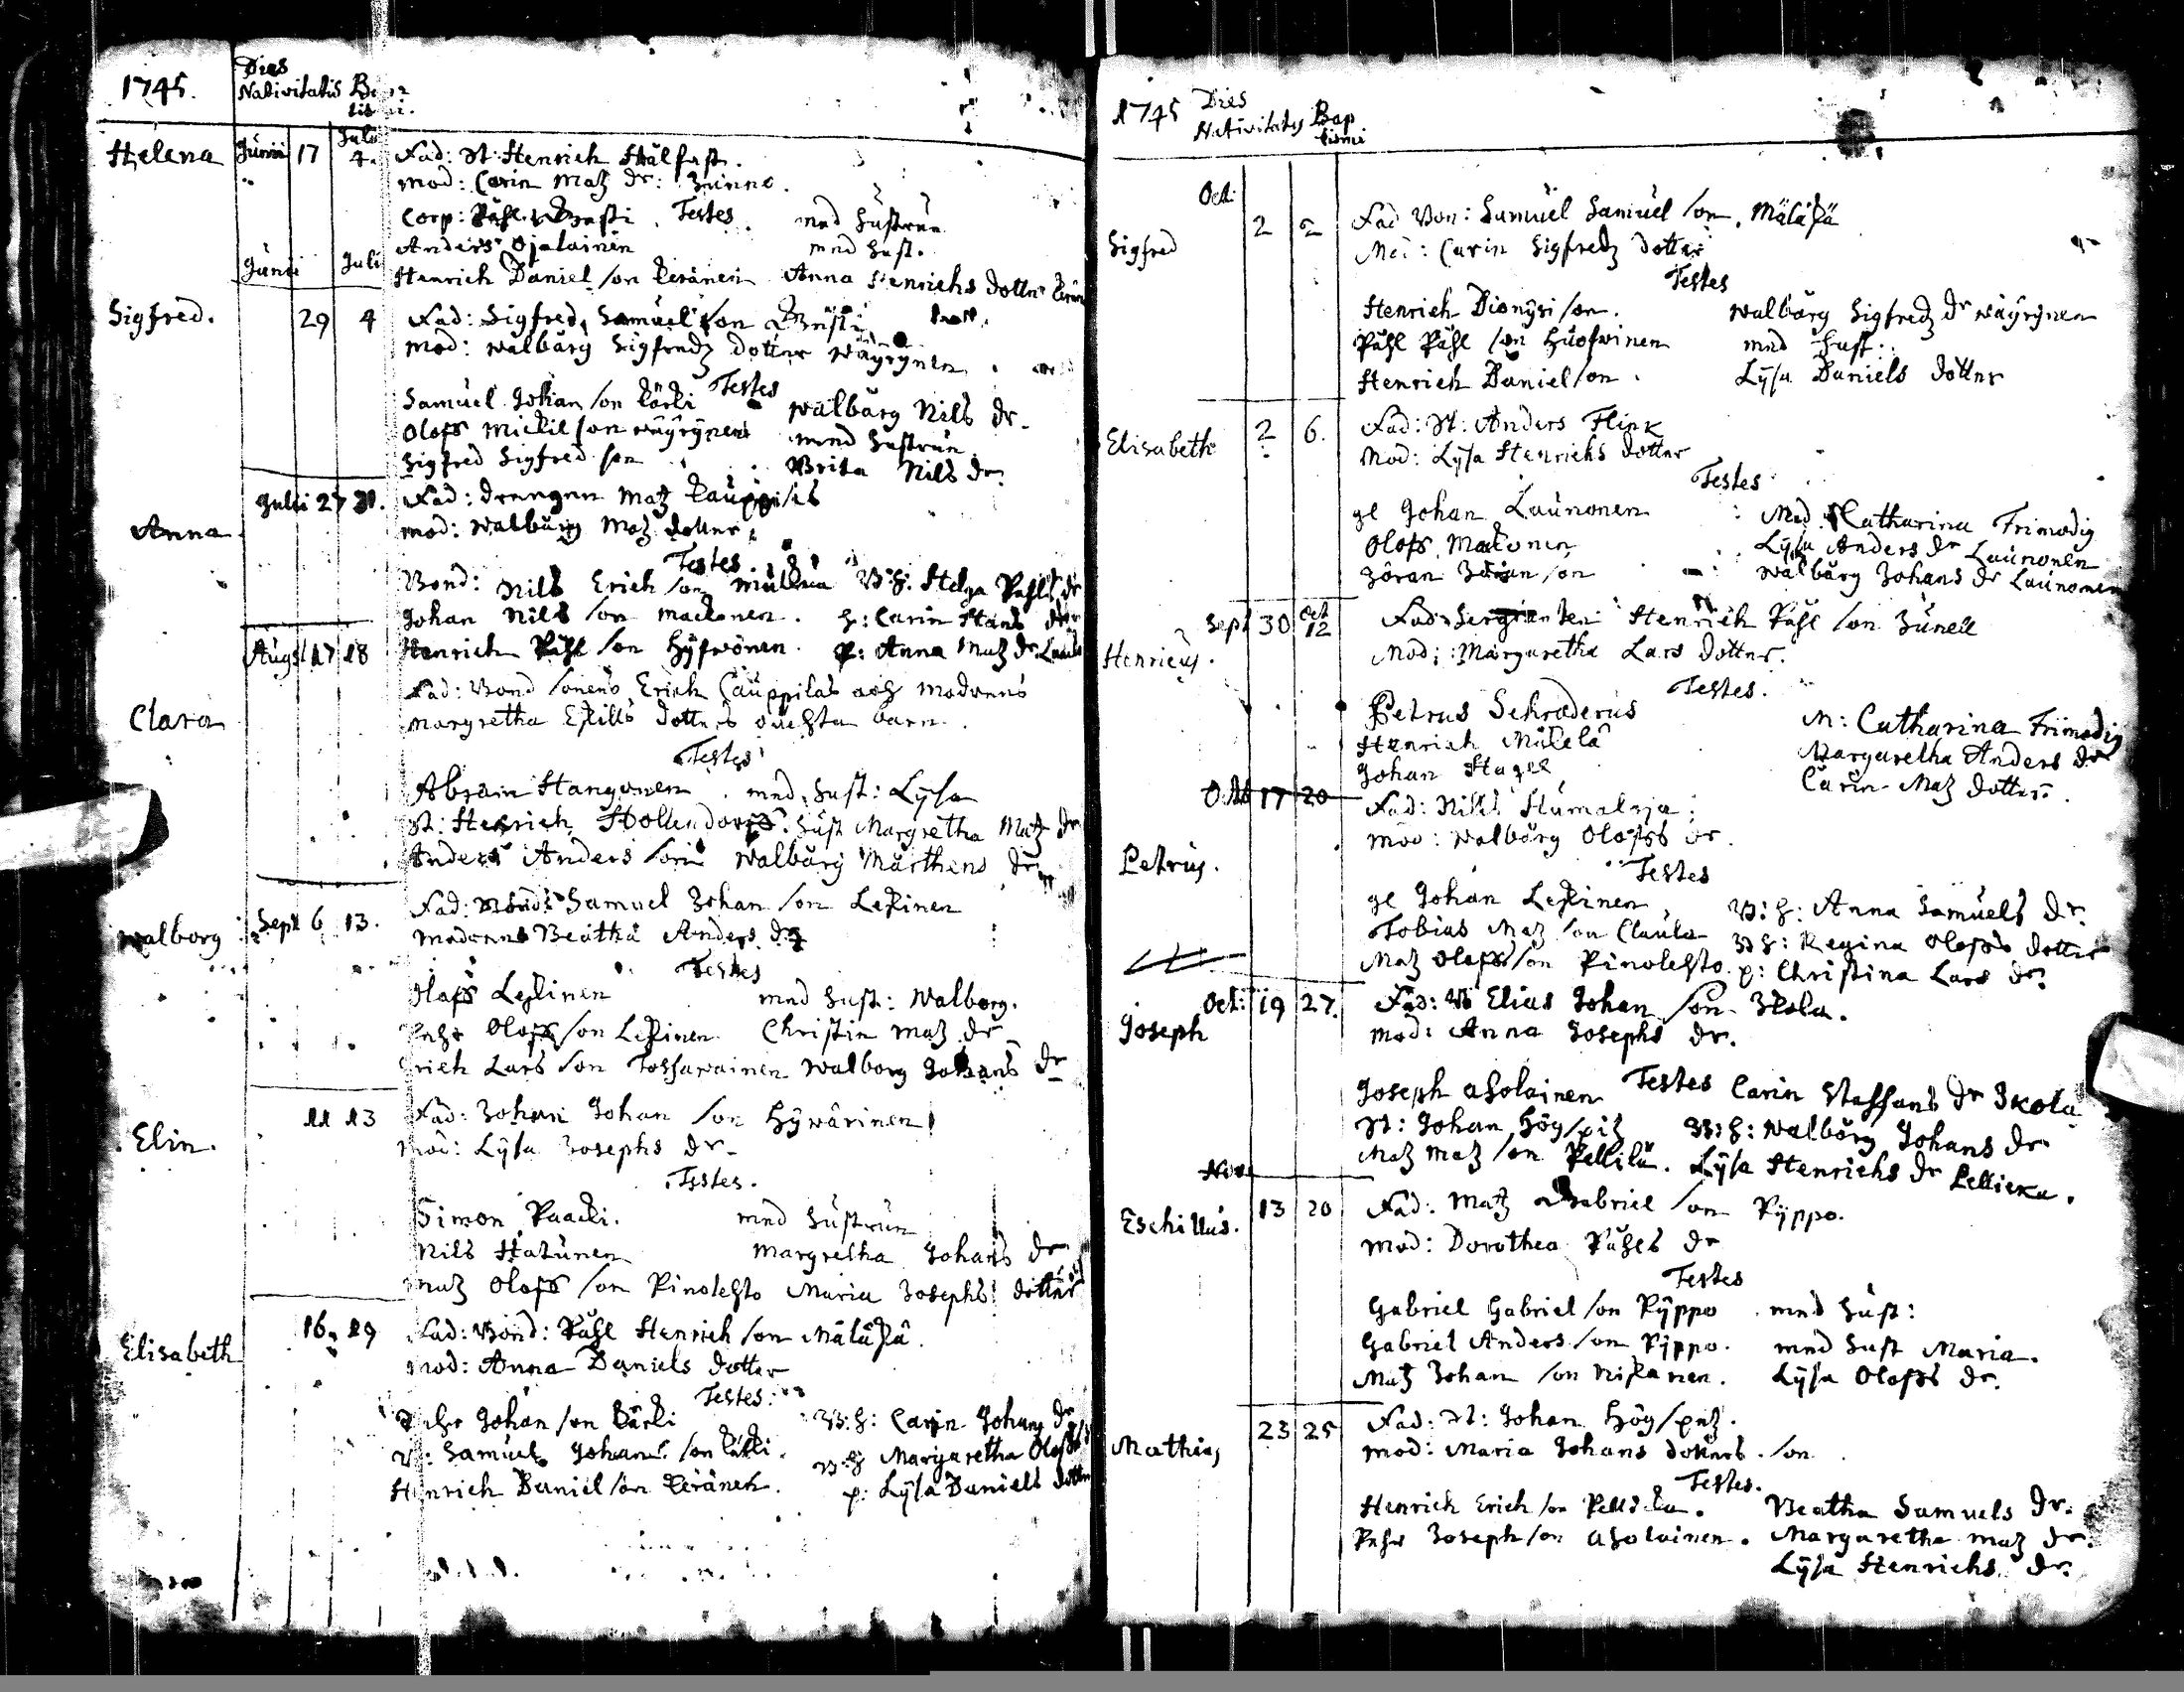 1745. Dies
Nativitatis
Helena Junii 17 Julii 4. Fad: St: Henrich Hälfast.
Mod: Carin Matz dr:
Corp: Påhl Testes mnd hustrun
Anders Ojalainen mnd hust.
Junii Juli Henrich Daniel son Keränen Anna Henrichs dotter
Sigfred. 29 4 Fad: Sigfred Samuel son
Mod: Walborg Sigfredz dotter Wäyrynen
Testes
Samuel Johan son Kärki Walborg Nils dr.
Olofs Mickil son Wäyrynen mnd hustrun
Sigfred Sigfred son Brita Nils dr.
Anna Julii 27 31. Fad: drengen Matz Kauppis
Mod: Walborg Matz dotter
Testes
Bond: Nils Erich son B:h: Helga Påhls dr
Johan Nils son Mackonen. h: Carin Hans
Augst 17 18 Henrich Påhl son Hyfwönen. p: Anna Matz dr
Clara Fad: Bond sonens Erich Cauppilas och modrens
Margretha Eskills dotters oächta barn.
Testes
Abram Hangonen. mnd hust: Lysa
St: Henrich Hollendorfs. hust Margretha Matz dr
Anders Anders son Walborg Mårthens dr
Walborg Sept 6 13. Fad: Samuel Johan son Leskinen
modrens Beatha Anders dr
Testes
Olofs Leskinen mnd hust: Walborg.
Olofs son Leskinen Christin Matz dr
Erich Lars son Tossawainen Walborg Johans dr
Elin. 11 13 Fad: Johan Johan son Hywärinen
Mod: Lysa Josephs dr
Testes.
Simon Paacki. mnd hustrun
Nils Hatunen Margretha Johans dr
Matz Olofs son Pinolehto Maria Josephs dotter
Elisabeth 16. 19 Fad: Bond: Påhl Henrich son Mäläskä.
Mod: Anna Daniels dotter
Testes:
Johan son Kärki B:h: Carin Johans dr
Samuel Johans son Kärki. B:h Margaretha Olofs
Henrich Daniel son Keränen. p: Lysa Daniels dotter
1745 Dies Nativitatis Baptismi
Oct:
Sigfred 2 2 Fad Bon: Samuel Samuel son. Mäläskä
Mod: Carin Sigfredz dotter
Testes
Henrich Dionysi son. Walborg Sigfredz dr Wäyrynen
Påhl Påhl son Huofwinen mnd hust.
Henrich Daniel son. Lysa Daniels dotter
Elisabeth 2 6. Fad: St: Anders Flink
Mod: Lysa Henrichs dotter
Testes
gl Johan Launonen Mad. Catharina Frimodig
Olofs Matonen Lysa Anders dr Launonen
Göran son Walborg Johans dr Launonen
Henricus. Sept 30 Oct 12 Fad: Sergianten Henrich Påhl son Junell
Mod: Margaretha Lars dotter.
Testes.
Petrus Schroderus M: Catharina Frimodig
Henrich Mälelä Margaretha Anders dr
Johan Hagel Carin Matz dotter.
Petrus. Octb 17 20 Fad: Nills Humaloja
Mod: Walborg Olofss dr.
Testes
gl Johan Leskinen B:h: Anna Samuels dr.
Tobias Matz son Claula B:h: Regina Olofss dotter
Matz Olofs son Pinolehto. p: Christina Lars dr.
Joseph Oct: 19 27. Fad: B Elias Johan son Ikola.
Mod: Anna Josephs dr.
Joseph Aholainen Testes Carin Staffans dr Ikola
St: Johan Högspitz B:h: Walborg Johans dr
Matz Matz son Pellikä. Lysa Henrichs dr Pellicka.
Nov.
Eschillus. 13 20 Fad: Matz Gabriel son Pyppo.
Mod: Dorothea Påhls dr
Testes
Gabriel Gabriel son Pyppo mnd hust:
Gabriel Anders son Pyppo. mnd hust Maria.
Matz Johan son Niskanen. Lysa Olofss dr.
Mathias 23 25 Fad: St: Johan Högspetz.
Mod: Maria Johans dotters. son
Testes.
Henrich Erich son Pellicka. Beatha Samuels dr.
Joseph son Aholainen. Margaretha Matz dr.
Lysa Henrichs dr.